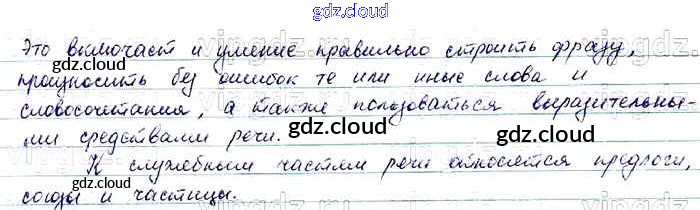 gdz.cloud
Это включает и умение правильно строить фразу,
произносить без ошибок те или иные слова и
словосочетания, а также пользоваться выразительны-
ми средствами речи.
gdz.cloud
gdz.cloud
К служебным частям речи относятся предлоги,
gdz.cloud
gdz.cloud
союзы и частицы.